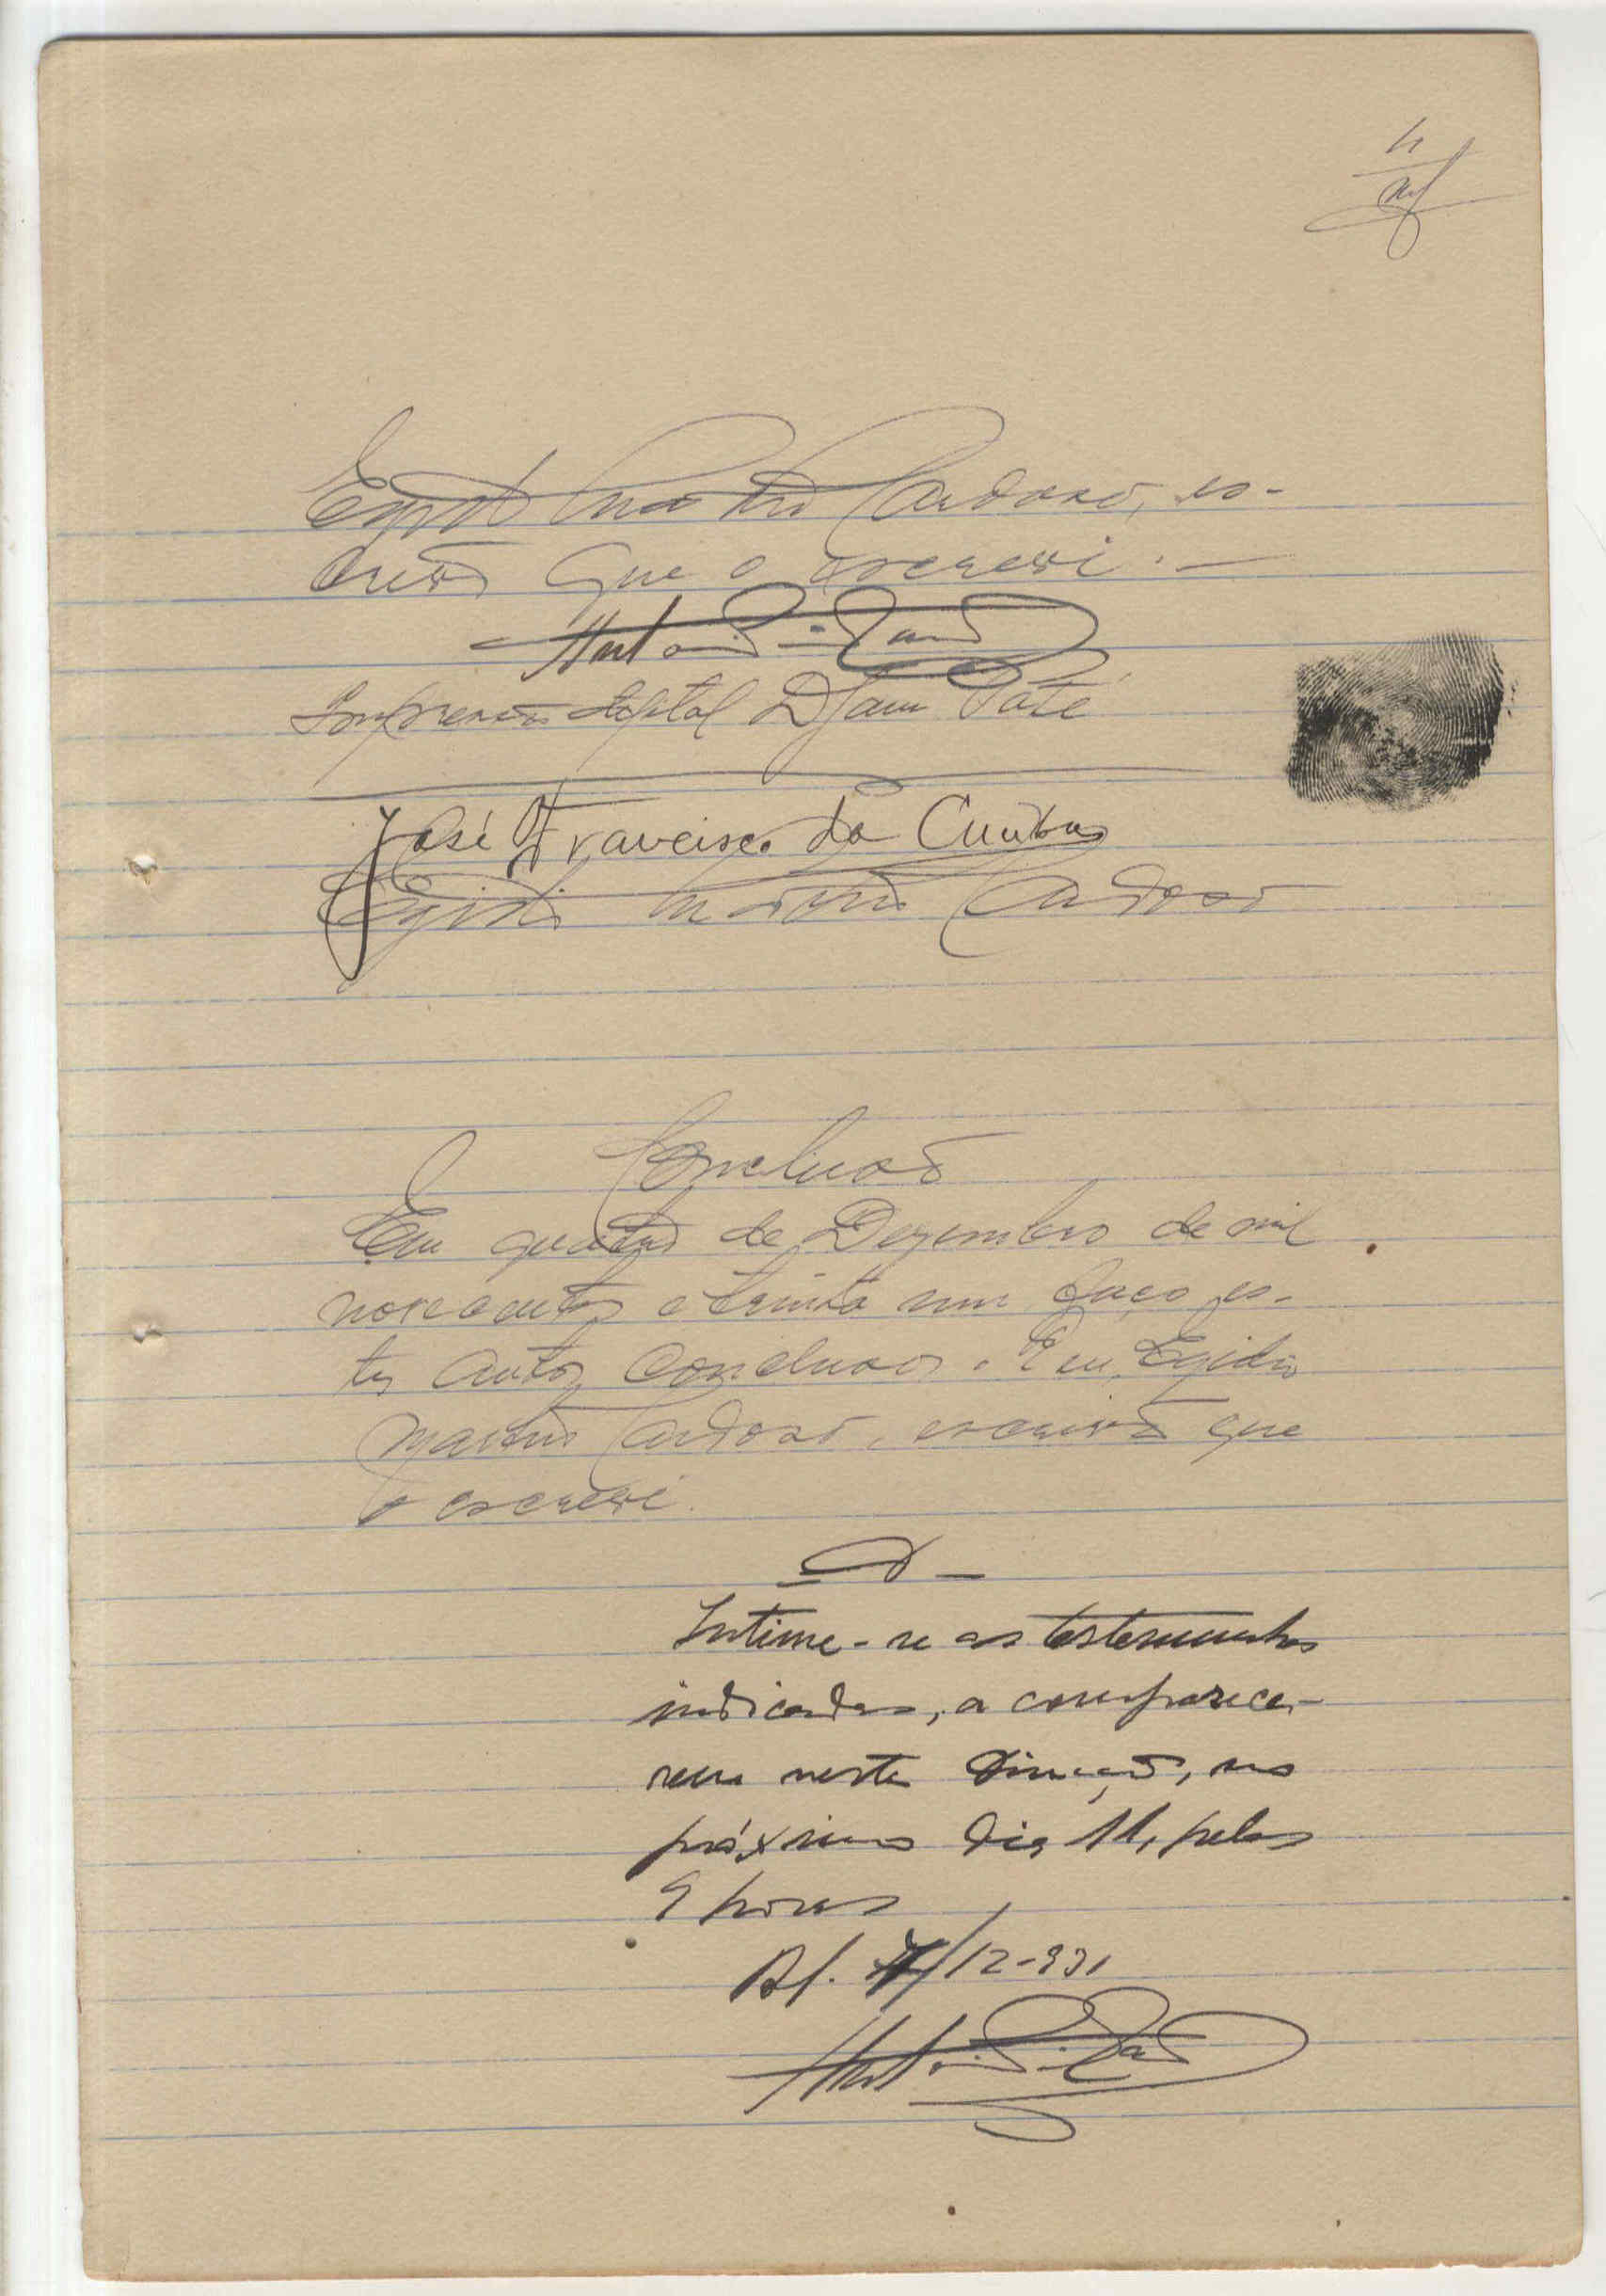 4
Egidio Martins Cardoso, es-
crivão que o escrevi. —
Impressão digital Djam Paté
José Francisco da Cunha
Egidio Martins Cardoso
Conclusão
Em quatro de Dezembro de mil
novecentos e trinta um faço es-
tes autos conclusos. Eu, Egidio
Martins Cardoso, escrivão que
o escrevi.
Intime-se as testemunhas
indicadas, a comparece-
rem nesta Direcção, no
próximo dia 11, pelas
9 horas
/12-931